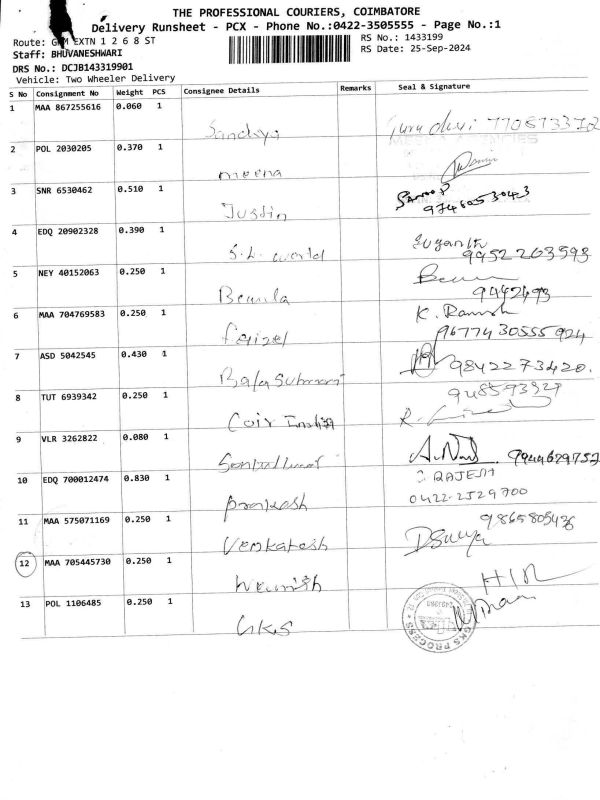 THE PROFESSIONAL COURIERS, COIMBATORE
Delivery Runsheet - PCX - Phone No.:0422-3505555 - Page No.:1
Route: EXTN 1 2 6 8 ST
RS No.: 1433199
Staff: BHUVANESHWARI
RS Date: 25-Sep-2024
DRS No.: DCJB143319901
Vehicle: Two Wheeler Delivery
S No Consignment No Weight PCS Consignee Details Remarks Seal & Signature
1 MAA 867255616 0.060 1
Sandhya
2 POL 2030205 0.370 1
meena
3 SNR 6530462 0.510 1
Justin
4 EDQ 20902328 0.390 1
S.L. world 9952263593
5 NEY 40152063 0.250 1
Beumla 9442493
6 MAA 704769583 0.250 1 K. Ramesh
faizel
7 ASD 5042545 0.430 1 9842273420.
8 TUT 6939342 0.250 1
Coir India
9 VLR 3262822 0.080 1
10 EDQ 700012474 0.830 1 RAJESH
Prakash 0422-2529700
11 MAA 575071169 0.250 1
Venkatesh DSurya
12 MAA 705445730 0.250 1
13 POL 1106485 0.250 1
GKS